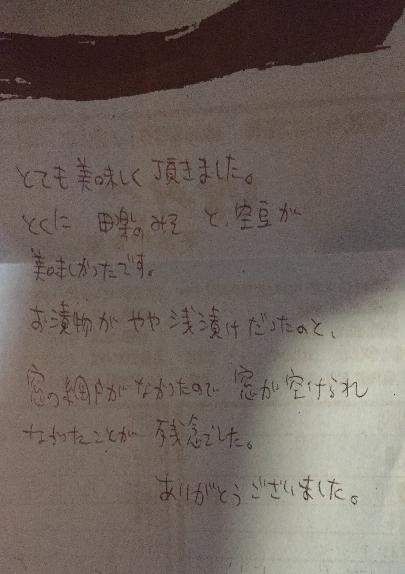 とても美味しく頂きました。
とくに 田楽のみそ と、空豆が
美味しかったです。
お漬物が やや 浅漬けだったのと、
窓の網戸がなかったので 窓が空けられ
なかったことが 残念でした。
ありがとうございました。